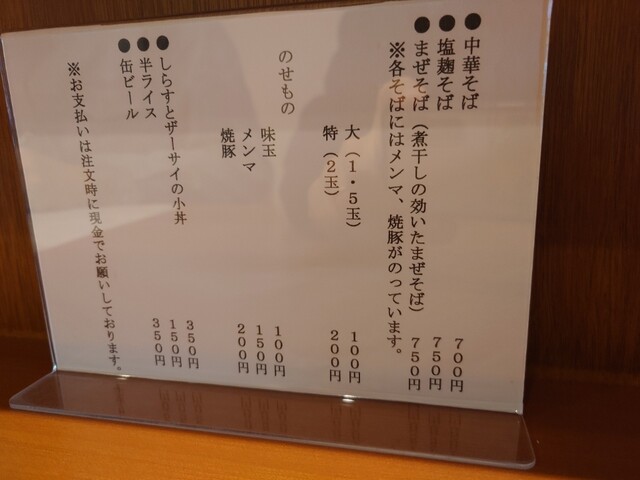 ●中華そば 700円
●塩麹そば 750円
●まぜそば(煮干しの効いたまぜそば) 750円
※各そばにはメンマ、焼豚がのっています。
大(1・5玉) 100円
特(2玉) 200円
のせもの
味玉 100円
メンマ 150円
焼豚 200円
●しらすとザーサイの小丼 350円
●半ライス 150円
●缶ビール 350円
※お支払いは注文時に現金でお願いしております。